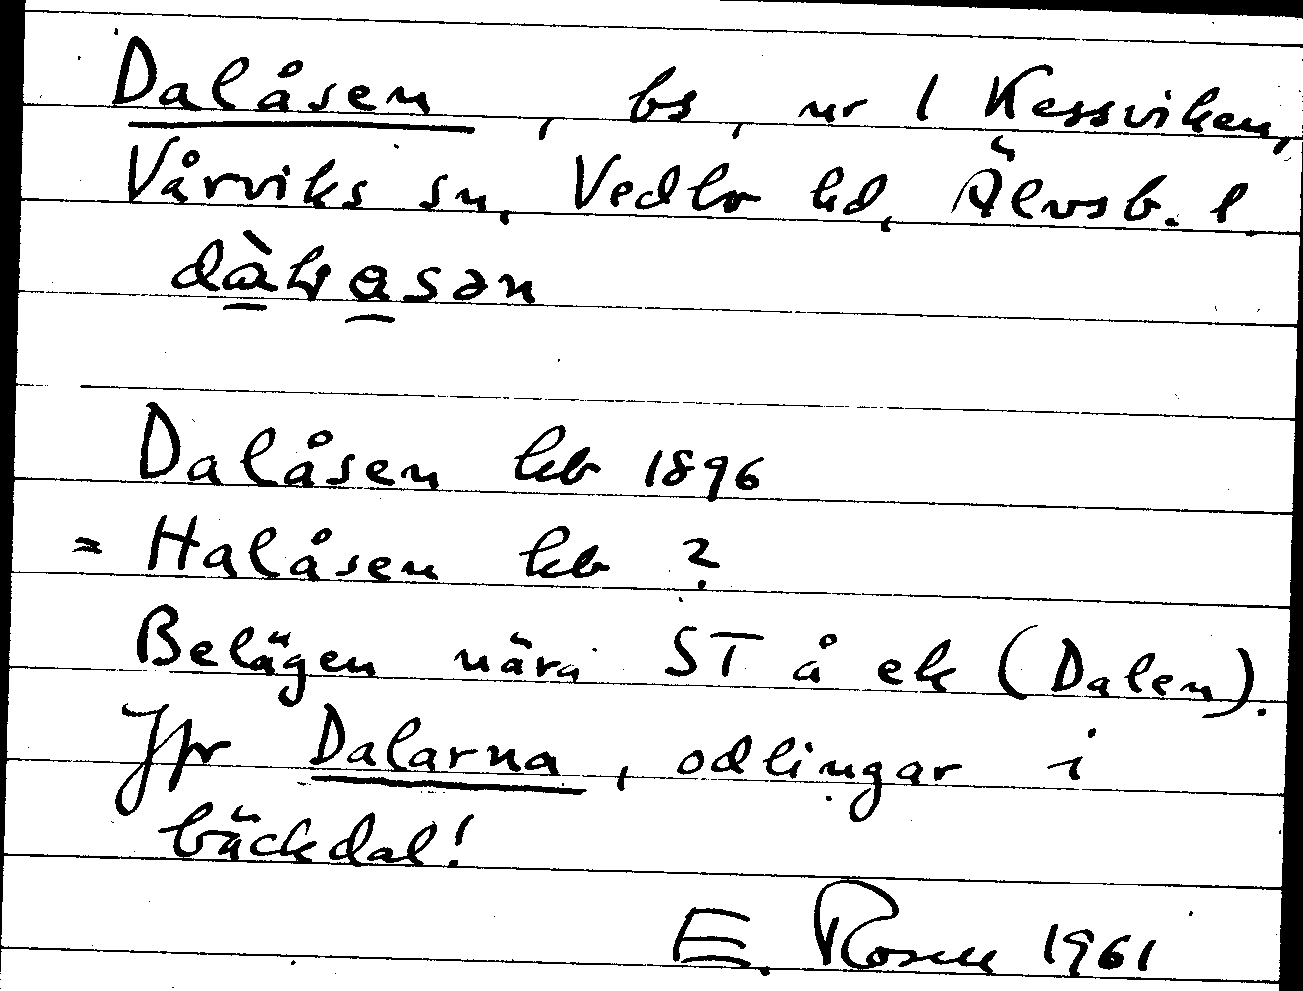 Dalåsen, bs, nr 1 Kessviken,
Vårviks sn, Vedbo hd, Älvsb. l.
Dalåsen kb 1896
= Halåsen kb ?
Belägen nära ST å ek (Dalen).
Jfr Dalarna, odlingar i
bäckdal!
E. Rosell 1961